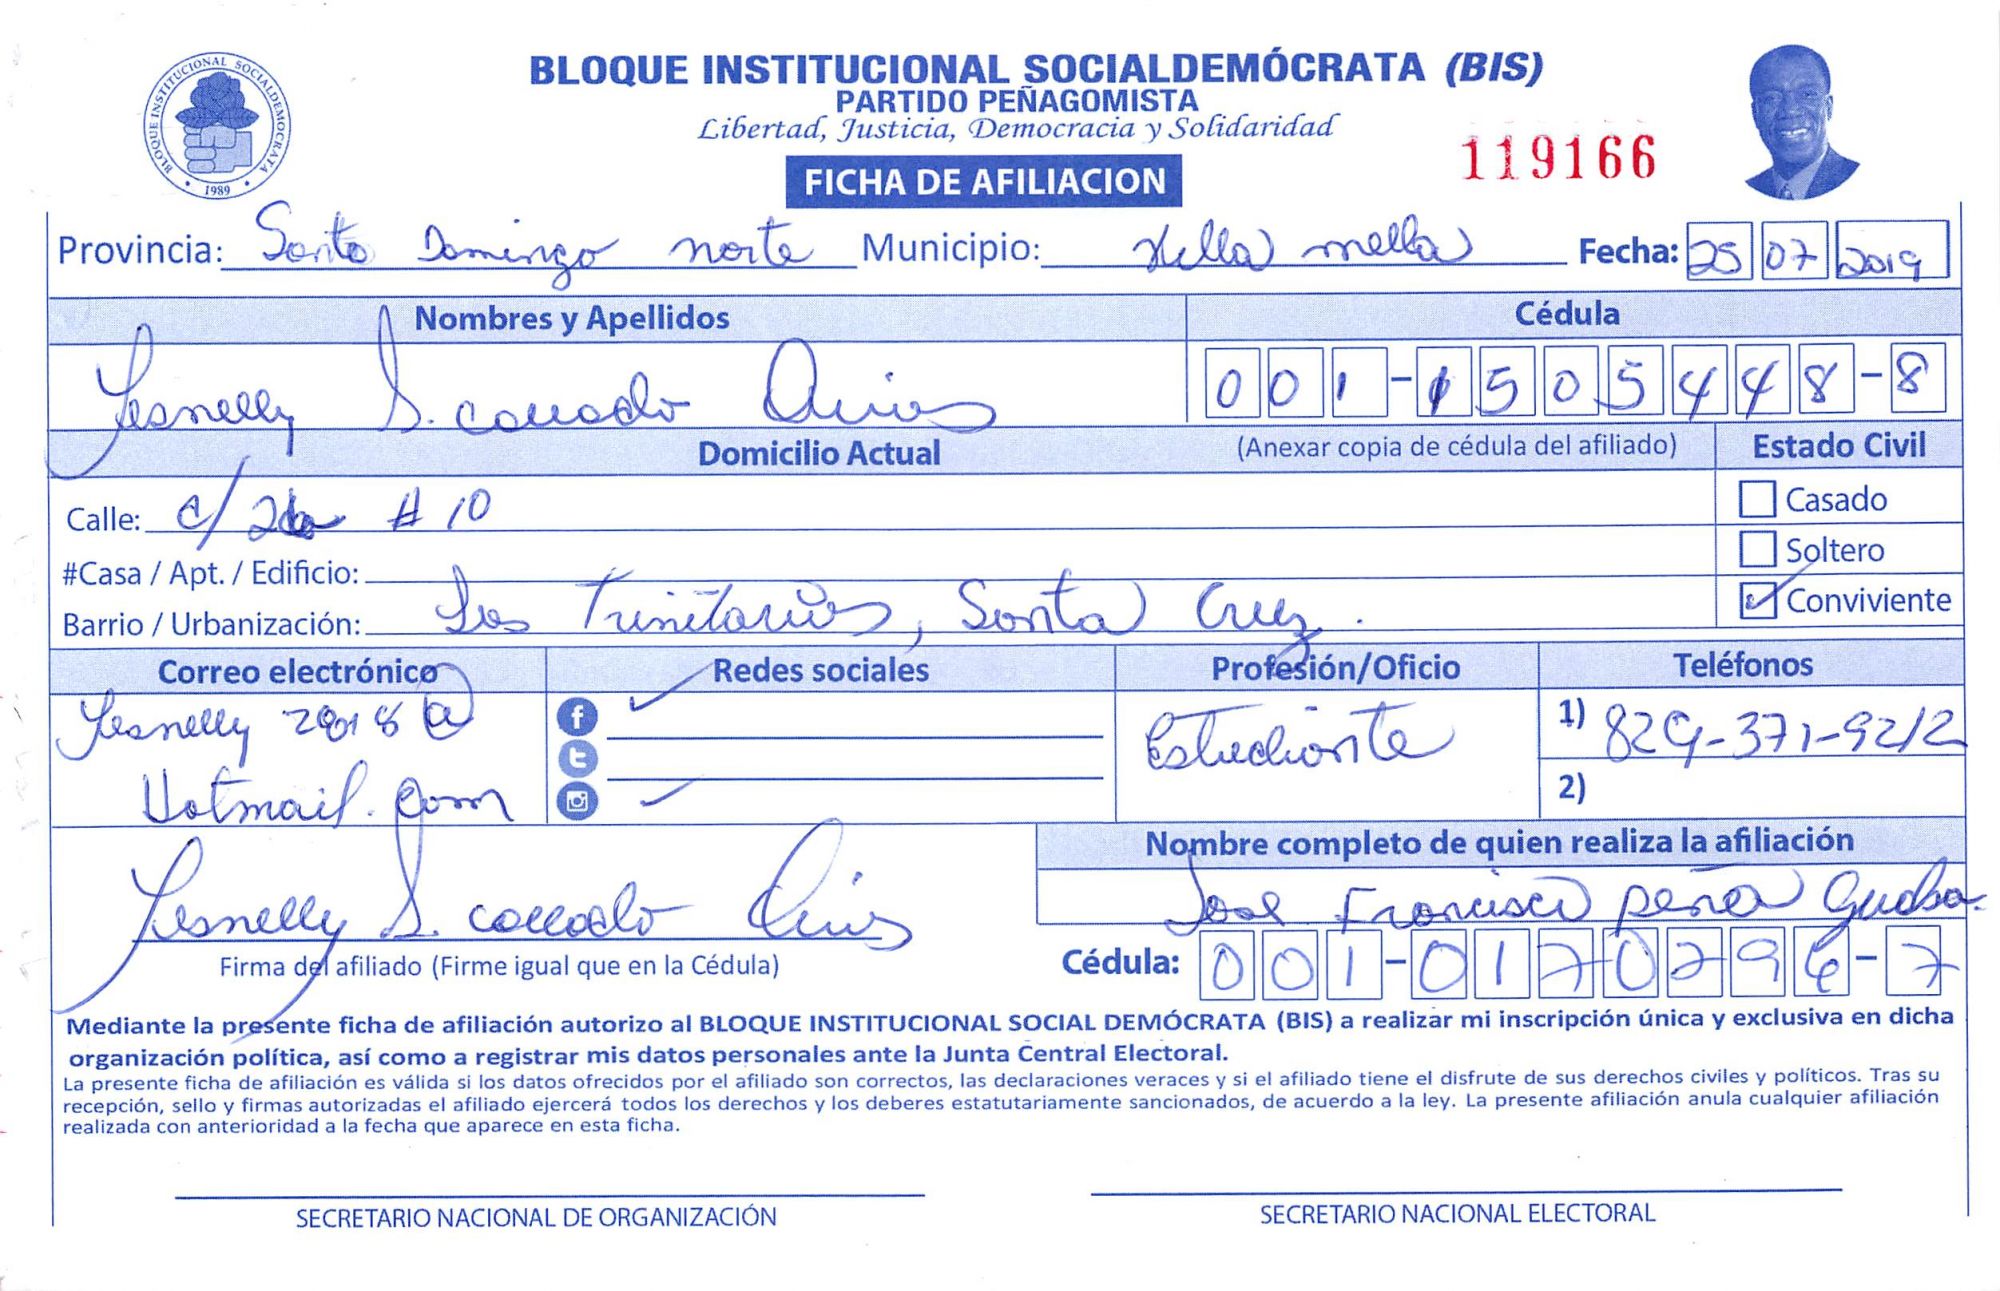 BLOQUE INSTITUCIONAL SOCIALDEMÓCRATA (BIS)
PARTIDO PEÑAGOMISTA
Libertad, Justicia, Democracia y Solidaridad
BLOQUE INSTITUCIONAL SOCIALDEMOCRATA
• 1989 •
119166
FICHA DE AFILIACION
Provincia: Santo Domingo norte Municipio: Villa mella Fecha: 25 07 2019
Nombres y Apellidos Cédula
Yesnelly S. collado 001-1505448-8
Domicilio Actual (Anexar copia de cédula del afiliado) Estado Civil
Calle: c/ 2da # 10 Casado
#Casa / Apt. / Edificio: Soltero
Barrio / Urbanización: Los Trinitarios, Santa Cruz. Conviviente
Correo electrónico Redes sociales Profesión/Oficio Teléfonos
Yesnelly 2018 @ Estudiante 1) 829-371-9212
Hotmail.com 2)
Nombre completo de quien realiza la afiliación
Yesnelly S. collado Jose Francisco peña
Firma del afiliado (Firme igual que en la Cédula) Cédula: 001-0170296-7
Mediante la presente ficha de afiliación autorizo al BLOQUE INSTITUCIONAL SOCIAL DEMÓCRATA (BIS) a realizar mi inscripción única y exclusiva en dicha
organización política, así como a registrar mis datos personales ante la Junta Central Electoral.
La presente ficha de afiliación es válida si los datos ofrecidos por el afiliado son correctos, las declaraciones veraces y si el afiliado tiene el disfrute de sus derechos civiles y políticos. Tras su
recepción, sello y firmas autorizadas el afiliado ejercerá todos los derechos y los deberes estatutariamente sancionados, de acuerdo a la ley. La presente afiliación anula cualquier afiliación
realizada con anterioridad a la fecha que aparece en esta ficha.
SECRETARIO NACIONAL DE ORGANIZACIÓN SECRETARIO NACIONAL ELECTORAL